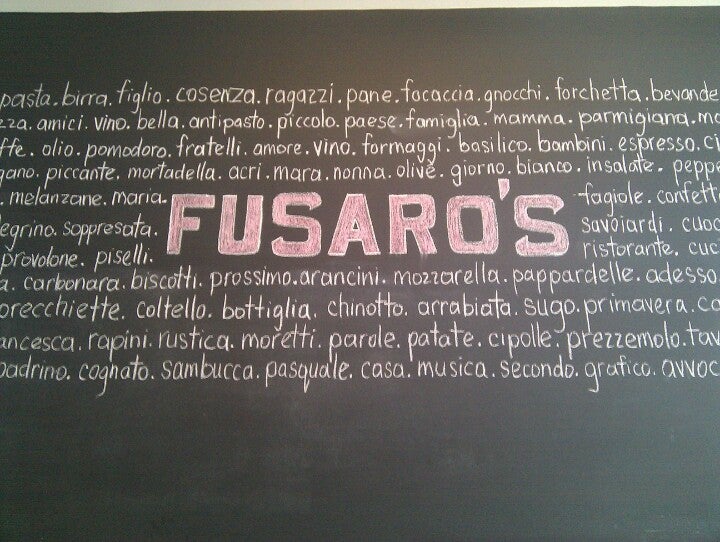 pasta. birra. figlio. cosenza. ragazzi. pane. focaccia. gnocchi. forchetta. bevande
zza. amici. vino. bella. antipasto. piccolo. paese. famiglia. mamma. parmigiana. mo
ffe. olio. pomodoro. fratelli. amore. vino. formaggi. basilico. bambini. espresso. ci
gano. piccante. mortadella. acri. mara. nonna. olive. giorno. bianco. insalate. peppe
. melanzane. maria. fagiole. confett
legrino. soppresata. FUSARO'S savoiardi. cuoc
provolone. piselli. ristorante. cuc
a. carbonara. biscotti. prossimo. arancini. mozzarella. pappardelle. adesso
orecchiette. coltello. bottiglia. chinotto. arrabiata. sugo. primavera. ca
ancesca. rapini. rustica. moretti. parole. patate. cipolle. prezzemolo. tav
padrino. cognato. sambucca. pasquale. casa. musica. secondo. grafico. avvoc